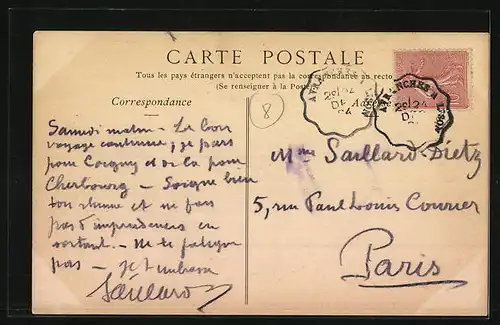 CARTE POSTALE
Tous les pays étrangers n'acceptent pas la correspondance au recto
(Se renseigner à la Poste
Correspondance
8
AVRANCHES A
24
DE
04
AVRANCHES A
24
Samedi matin - Le bon
voyage continue, je pars
pour Coigny et de là pour
Cherbourg - Soigne bien
ton rhume et ne fais
pas d'imprudences en
sortant - Ne te fatigue
pas - je t'embrasse
Saillard
Mme Saillard-Dietz
5, rue Paul Louis Courier
Paris